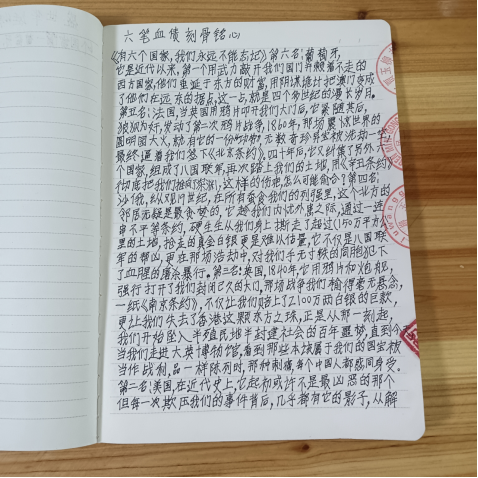 六笔血债刻骨铭心
《有六个国家,我们永远不能忘记》第六名:葡萄牙,
它是近代以来,第一个用武力敲开我们国门并赖着不走的
西方国家,他们垂涎于东方的财富,用阴谋诡计把澳门变成
了他们在远东的据点,这一占,就是四个多世纪的漫长岁月。
第五名:法国,当英国用鸦片叩开我们大门后,它紧随其后,
狼狈为奸,发动了第二次鸦片战争,1860年,那场震惊世界的
圆明园大火,就有它的一份"功劳",无数奇珍异宝被洗劫一空
最终逼着我们签下《北京条约》。四十年后,它又纠集了另外六
个国家,组成了八国联军,再次踏上我们的土地,用《辛丑条约》
彻底把我们推向深渊,这样的伤疤,怎么可能愈合?第四名,
沙俄,纵观近世纪,在所有蚕食我们的列强里,这个北方的
邻居无疑是最贪婪的,它趁我们内忧外患之际,通过一连
串不平等条约,硬生生从我们身上撕走了超过150万平方公
里的土地,抢走的真金白银更是难以估量,它不仅是八国联
军的帮凶,更在那场浩劫中,对我们手无寸铁的同胞犯下
了血腥的屠杀暴行。第三名:英国,1840年,它用鸦片和炮舰,
强行打开了我们封闭已久的大门,那场战争我们输得毫无悬念,
一纸《南京条约》,不仅让我们赔上了2100万两白银的巨款,
更让我们失去了香港这颗东方之珠,正是从那一刻起,
我们开始坠入半殖民地半封建社会的百年噩梦,直到今
当我们走进大英博物馆,看到那些本该属于我们的国宝被
当作战利品一样陈列时,那种刺痛,每个中国人都感同身受。
第二名:美国,在近代史上,它起初或许不是最凶恶的那个
但每一次欺压我们的事件背后,几乎都有它的影子,从解